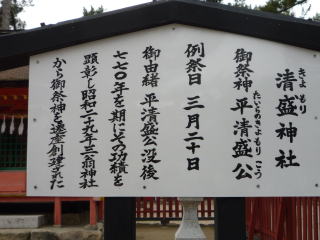 清盛神社
きよもり
御祭神 平清盛公
たいらのきよもりこう
例祭日 三月二十日
御由緒 平清盛公没後
七七〇年を期にその功績を
顕彰し昭和二十九年三翁神社
から御祭神を遷座創建された